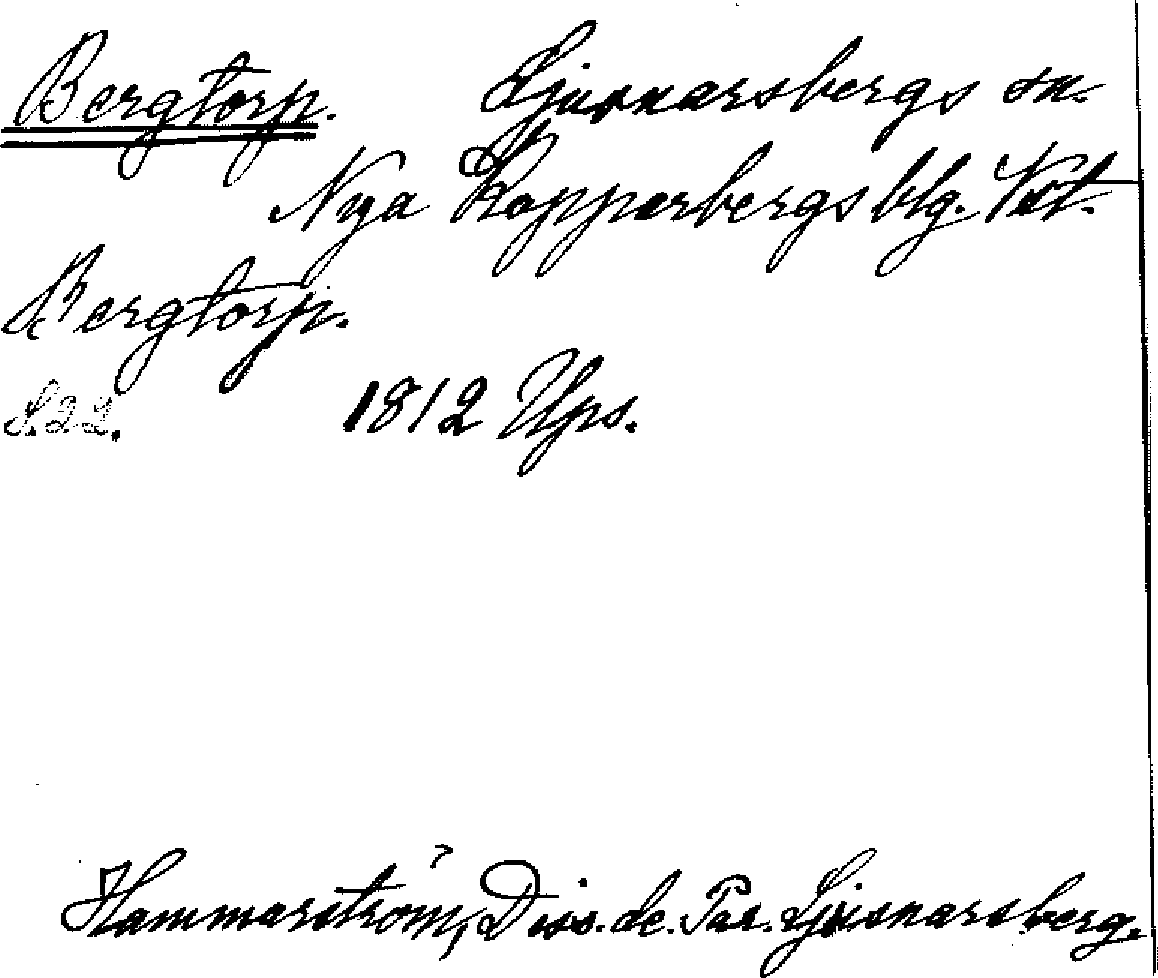 Bergtorp. Ljusnarsbergs sn.
Nya Kopparbergs blg. Vstl.
Bergtorp.
S. 22. 1812 Ups.
Hammarström, Diss. de. Par. Ljusnarsberg.